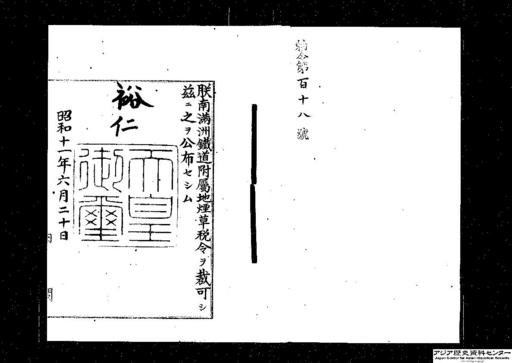 勅令第百十八號
朕南滿洲鐵道附屬地煙草税令ヲ裁可シ
玆ニ之ヲ公布セシム
裕仁
天皇御璽
昭和十一年六月二十日
アジア歴史資料センター
Japan Center for Asian Historical Records